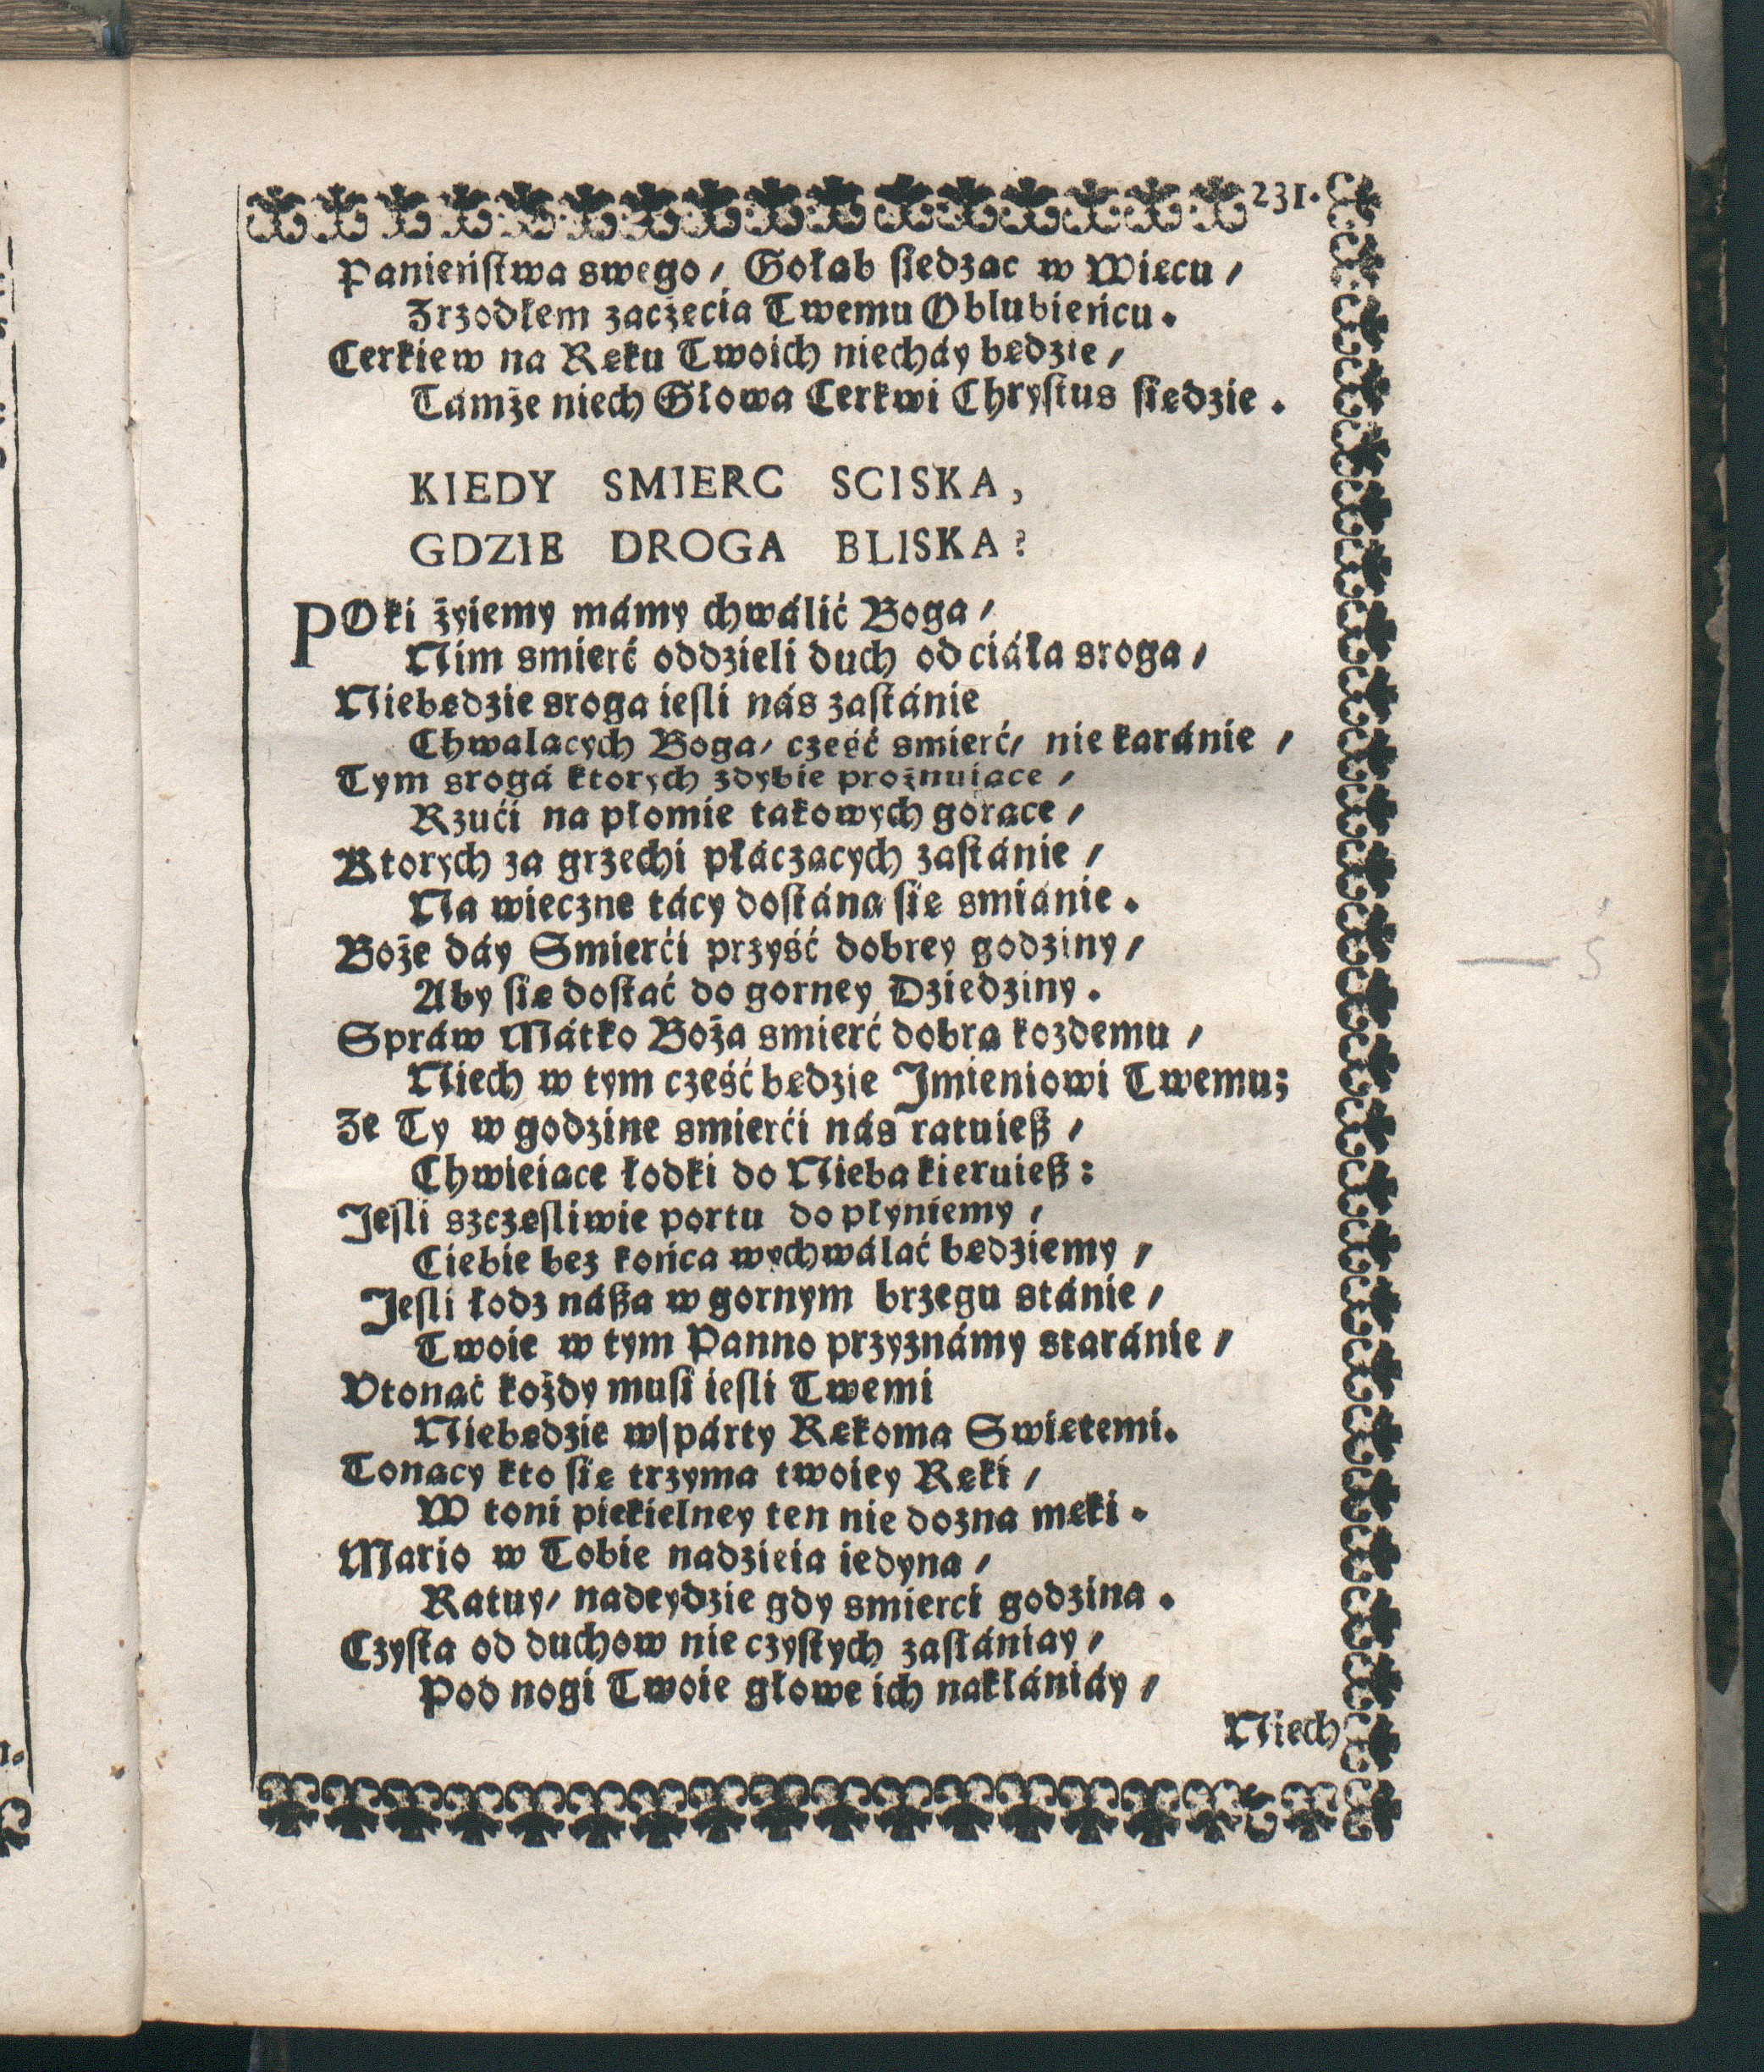 231.
Panieńſtwa swego, Gołąb ſiedząc w Więcu,
Zrzodłem zaczęcia Twemu Oblubieńcu.
Cerkiew na Ręku Twoich niecháy będzie,
Támże niech Głowa Cerkwi Chryſtus ſiędzie.
KIEDY SMIERC SCISKA,
GDZIE DROGA BLISKA?
POki żyiemy mámy chwálić Boga,
Nim smierć oddzieli duch od ciáła sroga,
Niebędzie sroga ieſli nás zaſtánie
Chwalących Boga, cześć smierć, nie karánie,
Tym srogá ktorych zdybie prożnuiące,
Rzući na płomie takowych gorące,
Ktorych za grzechi płáczących zaſtánie,
Na wieczne tácy doſtáną ſię smianie.
Boże dáy Smierći przyść dobrey godziny,
Aby ſię doſtać do gorney Dziedziny.
Spráw Mátko Boża smierć dobrą kozdemu,
Niech w tym cześć będzie Jmieniowi Twemu;
Ze Ty w godzine smierći nás ratuieß,
Chwieiące łodki do Nieba kieruieß:
Jeſli szczęſliwie portu dopłyniemy,
Ciebie bez końca wychwáláć będziemy,
Jeſli łodz náßa w gornym brzegu stánie,
Twoie w tym Panno przyznámy staránie,
Vtonąć kożdy muſi ieſli Twemi
Niebędzie wſpárty Rękoma Swiętemi.
Tonący kto ſię trzyma twoiey Ręki,
W toni piekielney ten nie dozna męki.
Mario w Tobie nadzieia iedyna,
Ratuy, nadeydzie gdy smierci godzina.
Czyſta od duchow nie czyſtych zaſłániay,
Pod nogi Twoie głowę ich nakłániáy,
Niech
5